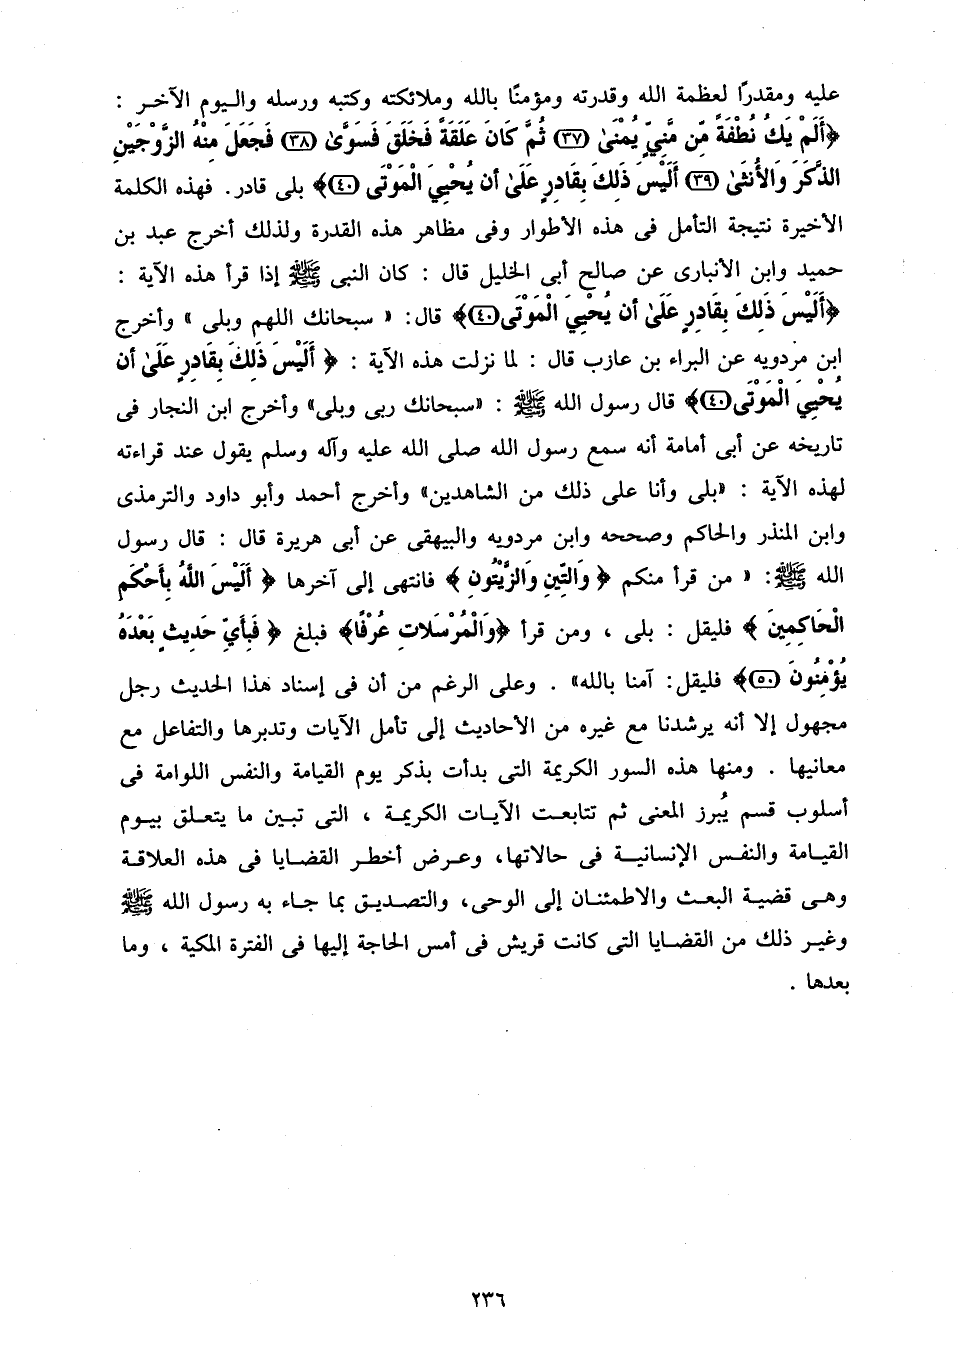 عليه ومقدرًا لعظمة الله وقدرته ومؤمنًا بالله وملائكته وكتبه ورسله واليوم الآخر :
﴿أَلَمْ يَكُ نُطْفَةً مِّن مَّنِيٍّ يُمْنَىٰ (٣٧) ثُمَّ كَانَ عَلَقَةً فَخَلَقَ فَسَوَّىٰ (٣٨) فَجَعَلَ مِنْهُ الزَّوْجَيْنِ
الذَّكَرَ وَالأُنثَىٰ (٣٩) أَلَيْسَ ذَلِكَ بِقَادِرٍ عَلَىٰ أَن يُحْيِيَ الْمَوْتَى (٤٠)﴾ بلى قادر. فهذه الكلمة
الأخيرة نتيجة التأمل فى هذه الأطوار وفى مظاهر هذه القدرة ولذلك أخرج عبد بن
حميد وابن الأنبارى عن صالح أبى الخليل قال : كان النبى ﷺ إذا قرأ هذه الآية :
﴿أَلَيْسَ ذَلِكَ بِقَادِرٍ عَلَىٰ أَن يُحْيِيَ الْمَوْتَى(٤٠)﴾ قال: « سبحانك اللهم وبلى » وأخرج
ابن مردويه عن البراء بن عازب قال : لما نزلت هذه الآية : ﴿ أَلَيْسَ ذَلِكَ بِقَادِرٍ عَلَىٰ أَن
يُحْيِيَ الْمَوْتَى(٤٠)﴾ قال رسول الله ﷺ : «سبحانك ربى وبلى» وأخرج ابن النجار فى
تاريخه عن أبى أمامة أنه سمع رسول الله صلى الله عليه وآله وسلم يقول عند قراءته
لهذه الآية : «بلى وأنا على ذلك من الشاهدين» وأخرج أحمد وأبو داود والترمذى
وابن المنذر والحاكم وصححه وابن مردويه والبيهقى عن أبى هريرة قال : قال رسول
الله ﷺ: « من قرأ منكم ﴿ وَالتِّينِ وَالزَّيْتُونِ ﴾ فانتهى إلى آخرها ﴿ أَلَيْسَ اللَّهُ بِأَحْكَمِ
الْحَاكِمِينَ ﴾ فليقل : بلى ، ومن قرأ ﴿وَالْمُرْسَلاتِ عُرْفًا﴾ فبلغ ﴿ فَبِأَيِّ حَدِيثٍ بَعْدَهُ
يُؤْمِنُونَ (٥٠)﴾ فليقل: آمنا بالله» . وعلى الرغم من أن فى إسناد هذا الحديث رجل
مجهول إلا أنه يرشدنا مع غيره من الأحاديث إلى تأمل الآيات وتدبرها والتفاعل مع
معانيها . ومنها هذه السور الكريمة التى بدأت بذكر يوم القيامة والنفس اللوامة فى
أسلوب قسم يُبرز المعنى ثم تتابعت الآيات الكريمة ، التى تبين ما يتعلق بيوم
القيامة والنفس الإنسانية فى حالاتها، وعرض أخطر القضايا فى هذه العلاقة
وهى قضية البعث والاطمئنان إلى الوحى، والتصديق بما جاء به رسول الله ﷺ
وغير ذلك من القضايا التى كانت قريش فى أمس الحاجة إليها فى الفترة المكية ، وما
بعدها .
٢٣٦